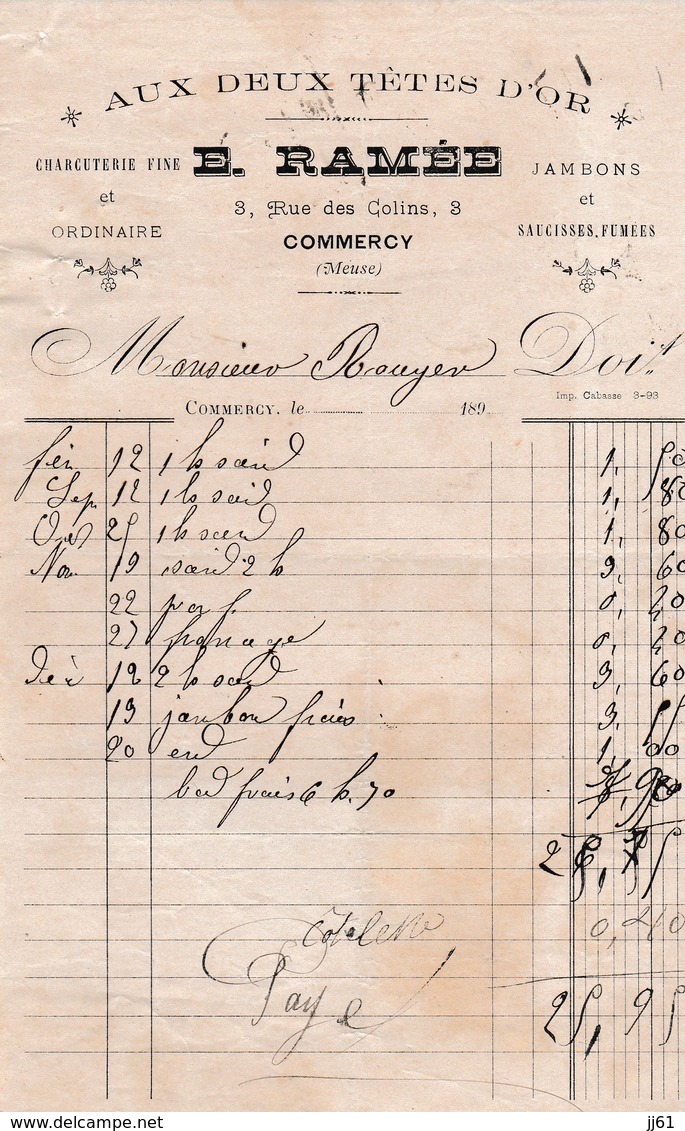 AUX DEUX TÊTES D'OR
CHARCUTERIE FINE
et
ORDINAIRE
E. RAMÉE
3, Rue des Colins, 3
COMMERCY
(Meuse)
JAMBONS
et
SAUCISSES, FUMÉES
Monsieur Rouyer Doit
Imp. Cabasse 3-93
COMMERCY, le 189
fév 12 1 h 1, 50
Sep. 12 1 h 1, 80
Oct 25 1 h 1, 80
Nov 19 2 h 3, 60
22 0, 40
27 fromage 0,
Déc 12 2 h 3, 60
13 jambon frais 3, 55
20 1, 00
frais 6 h. 70
0,40
Payé
25, 95
jj61